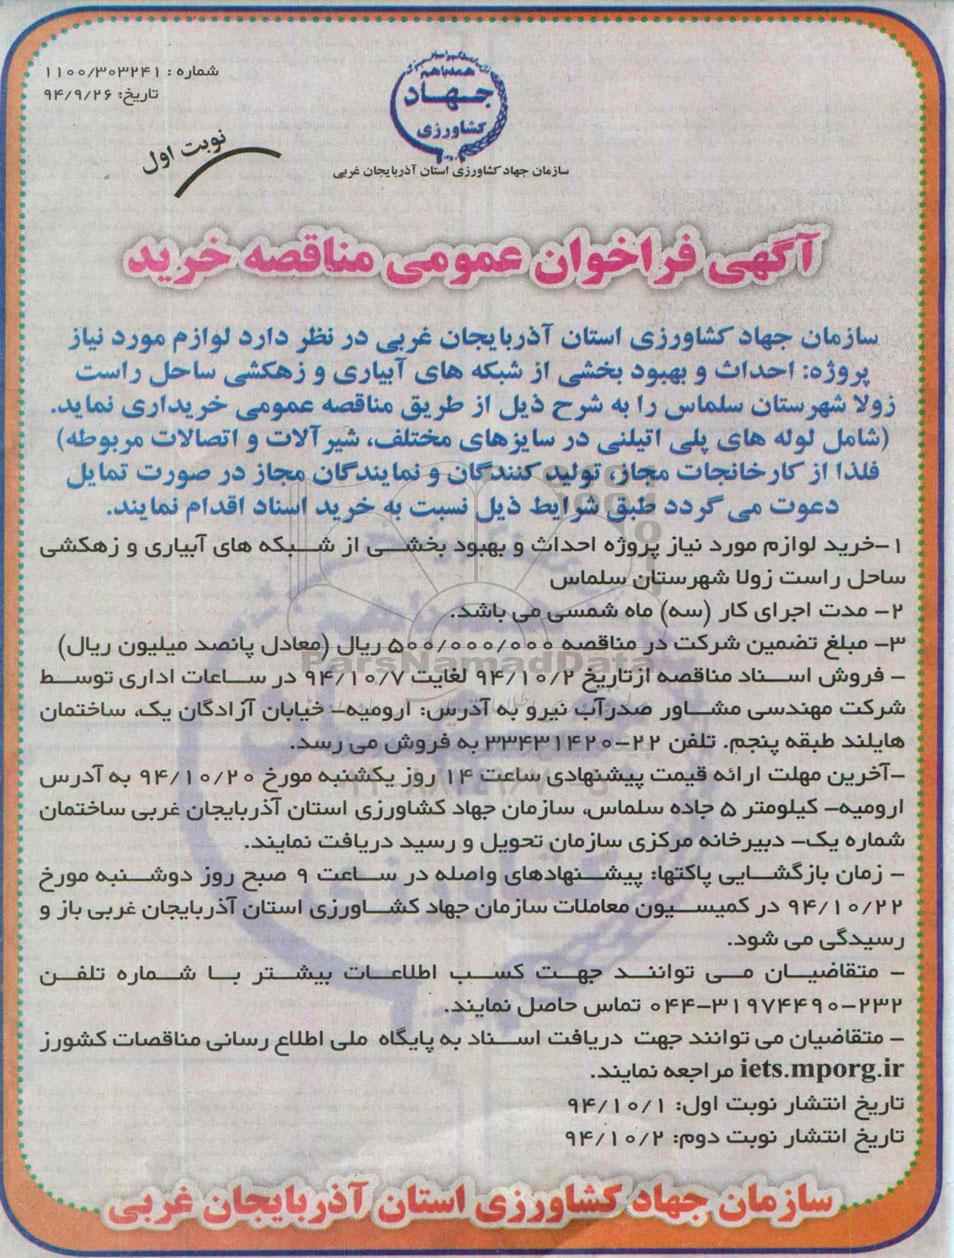 شماره : ۱۱۰۰/۳۰۳۲۴۱
تاریخ: ۹۴/۹/۲۶
همه با هم
جهاد
کشاورزی
سازمان جهاد کشاورزی استان آذربایجان غربی
نوبت اول
آگهی فراخوان عمومی مناقصه خرید
سازمان جهاد کشاورزی استان آذربایجان غربی در نظر دارد لوازم مورد نیاز
پروژه: احداث و بهبود بخشی از شبکه های آبیاری و زهکشی ساحل راست
زولا شهرستان سلماس را به شرح ذیل از طریق مناقصه عمومی خریداری نماید.
(شامل لوله های پلی اتیلنی در سایزهای مختلف، شیرآلات و اتصالات مربوطه)
فلذا از کارخانجات مجاز، تولید کنندگان و نمایندگان مجاز در صورت تمایل
دعوت می گردد طبق شرایط ذیل نسبت به خرید اسناد اقدام نمایند.
۱-خرید لوازم مورد نیاز پروژه احداث و بهبود بخشی از شبکه های آبیاری و زهکشی
ساحل راست زولا شهرستان سلماس
۲- مدت اجرای کار (سه) ماه شمسی می باشد.
۳- مبلغ تضمین شرکت در مناقصه ۵۰۰/۰۰۰/۰۰۰ ریال (معادل پانصد میلیون ریال)
ParsNamadData
- فروش اسناد مناقصه ازتاریخ ۹۴/۱۰/۲ لغایت ۹۴/۱۰/۷ در ساعات اداری توسط
شرکت مهندسی مشاور صدرآب نیرو به آدرس: ارومیه- خیابان آزادگان یک، ساختمان
هایلند طبقه پنجم. تلفن ۲۲-۳۳۴۳۱۴۲۰ به فروش می رسد.
-آخرین مهلت ارائه قیمت پیشنهادی ساعت ۱۴ روز یکشنبه مورخ ۹۴/۱۰/۲۰ به آدرس
ارومیه- کیلومتر ۵ جاده سلماس، سازمان جهاد کشاورزی استان آذربایجان غربی ساختمان
شماره یک- دبیرخانه مرکزی سازمان تحویل و رسید دریافت نمایند.
- زمان بازگشایی پاکتها: پیشنهادهای واصله در ساعت ۹ صبح روز دوشنبه مورخ
۹۴/۱۰/۲۲ در کمیسیون معاملات سازمان جهاد کشاورزی استان آذربایجان غربی باز و
رسیدگی می شود.
- متقاضیان می توانند جهت کسب اطلاعات بیشتر با شماره تلفن
۰۴۴-۳۱۹۷۴۴۹۰-۲۳۲ تماس حاصل نمایند.
- متقاضیان می توانند جهت دریافت اسناد به پایگاه ملی اطلاع رسانی مناقصات کشورز
iets.mporg.ir مراجعه نمایند.
تاریخ انتشار نوبت اول: ۹۴/۱۰/۱
تاریخ انتشار نوبت دوم: ۹۴/۱۰/۲
سازمان جهاد کشاورزی استان آذربایجان غربی